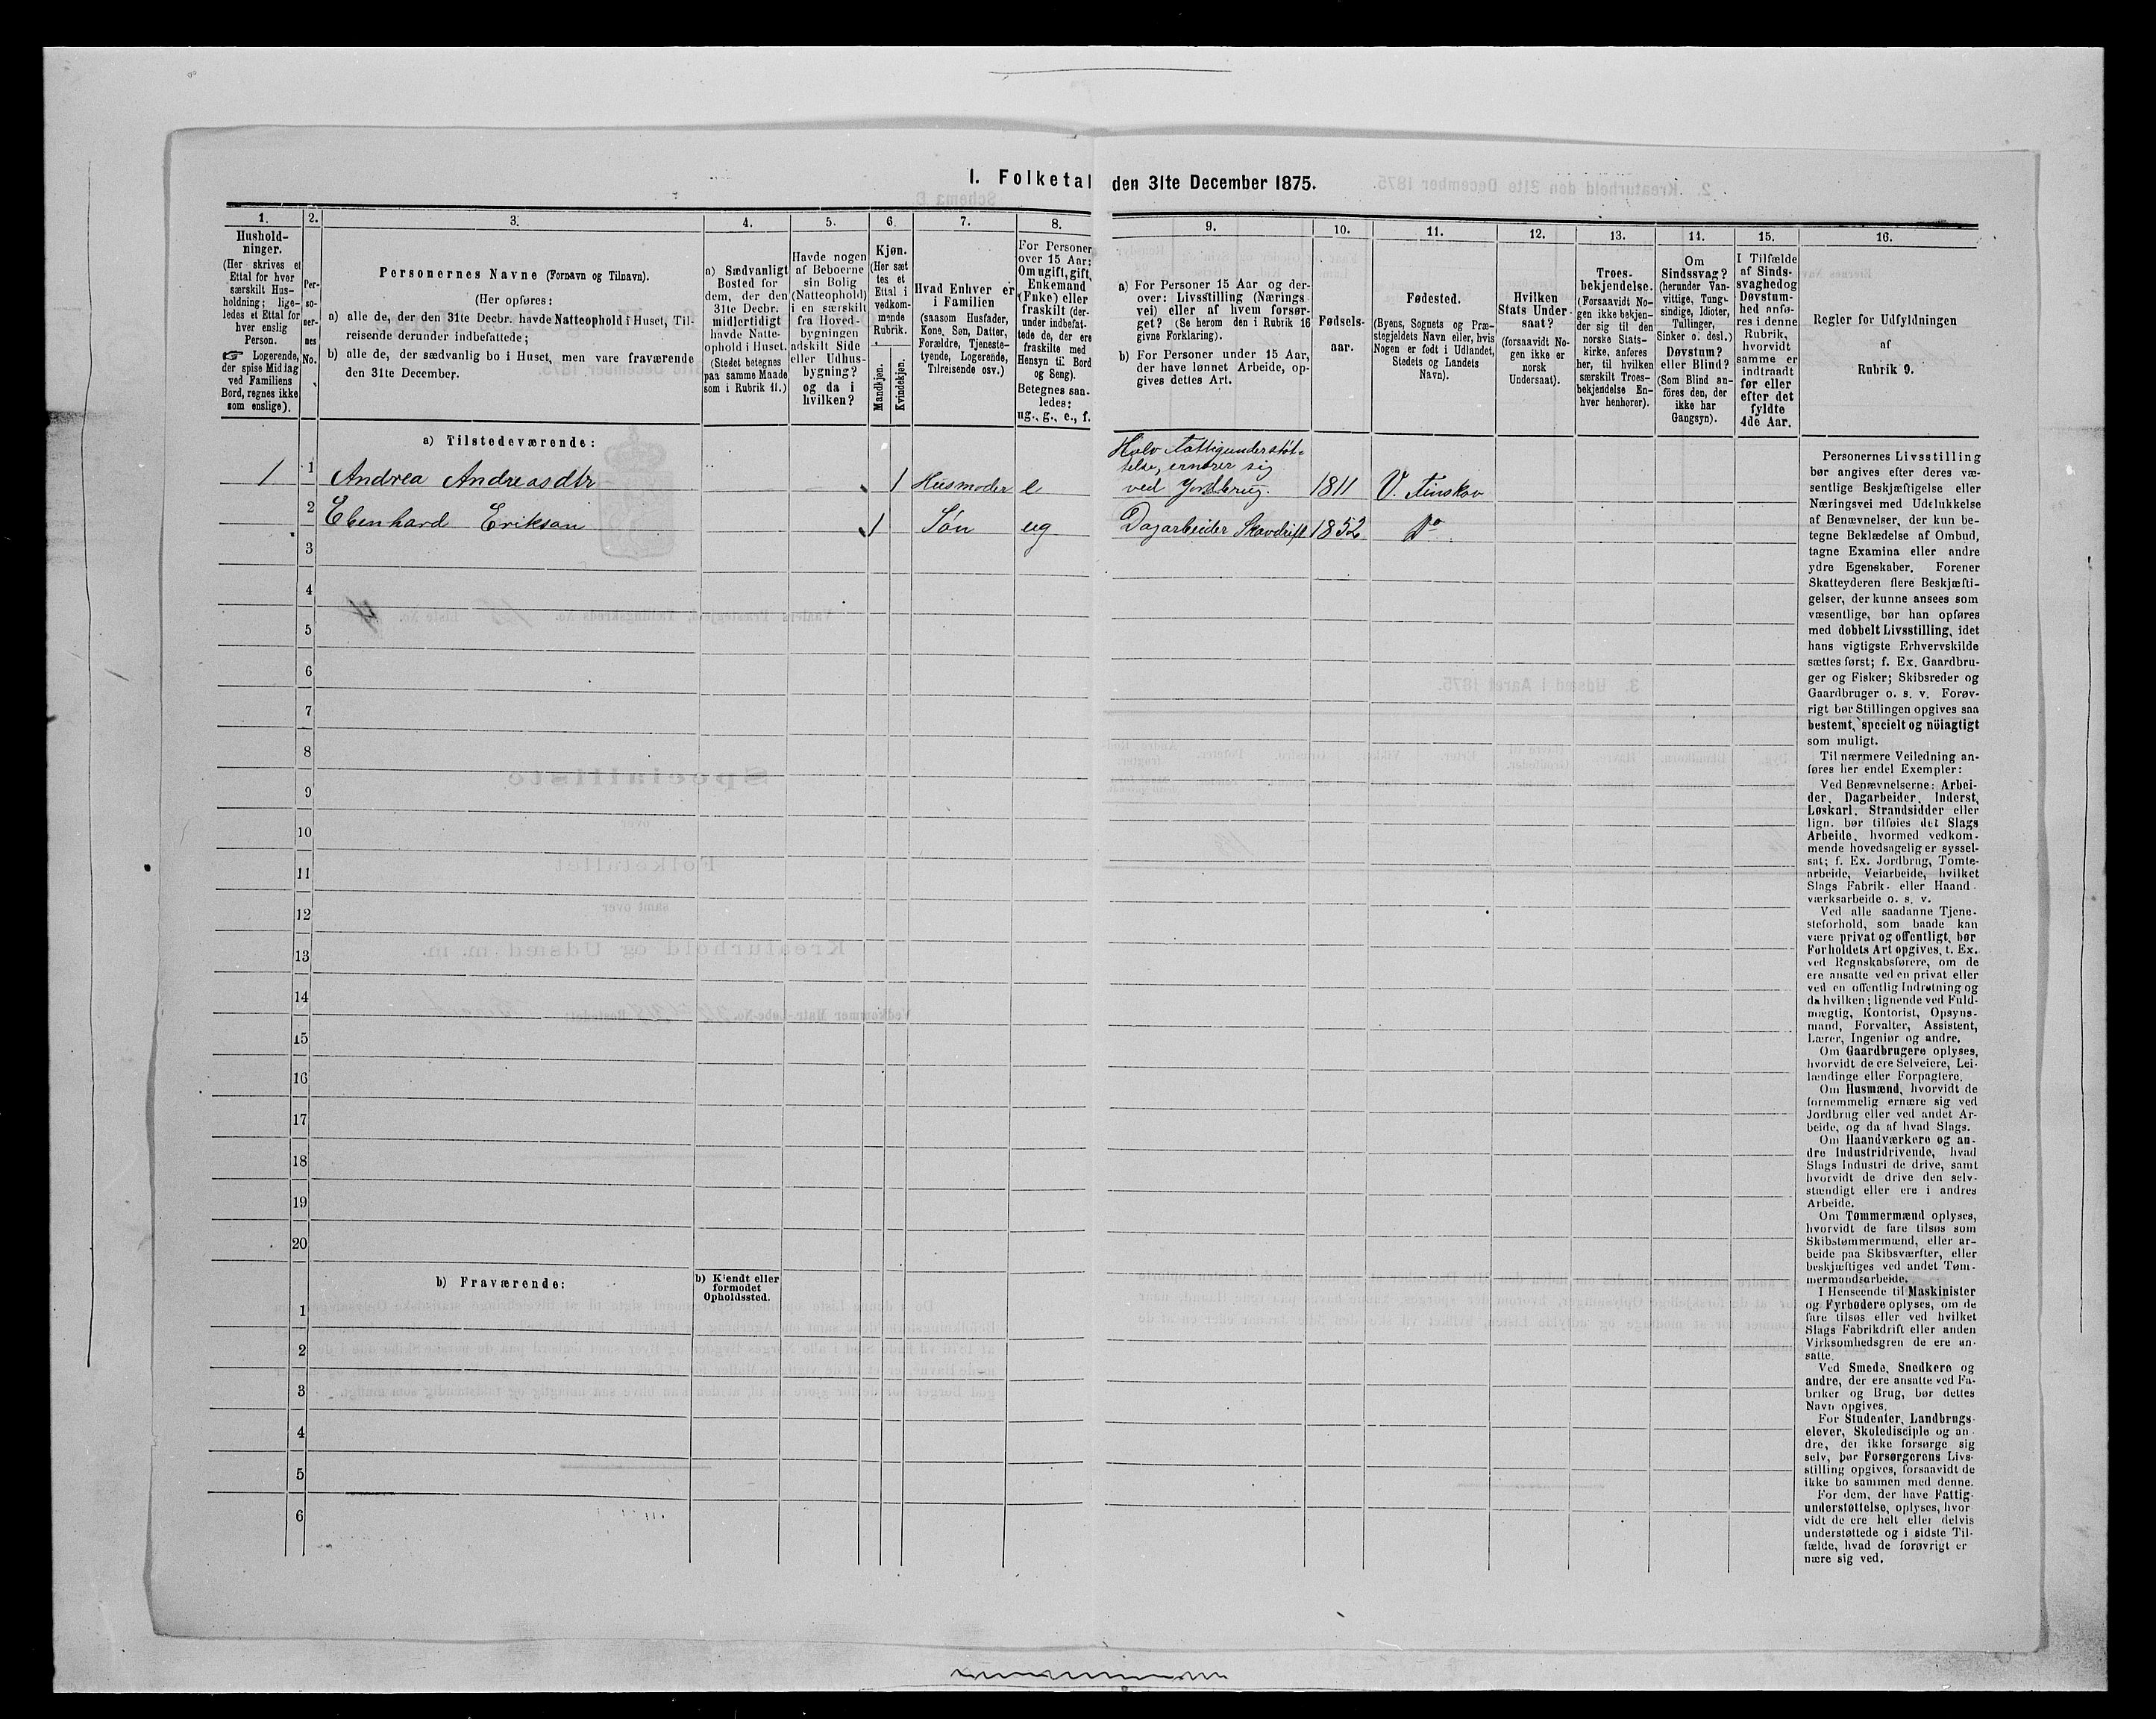 I. Folketal den 31te December 1875.
1.
Hushold-
ninger.
(Her skrives et
Ettal for hver
særskilt Hus-
holdning; lige-
ledes et Ettal for
hver enslig
Person.
☞ Logerende,
der spise Middag
ved Familiens
Bord, regnes ikke
som enslige).
2.
Per-
so-
ner-
nes
No.
3.
Personernes Navne (Fornavn og Tilnavn).
(Her opføres:
a) alle de, der den 31te Decbr. havde Natteophold i Huset, Til-
reisende derunder indbefattede;
b) alle de, der sædvanlig bo i Huset, men vare fraværende
den 31te December.
4.
a) Sædvanligt
Bosted for
dem, der den
31te Decbr.
midlertidigt
havde Natte-
ophold i Huset.
(Stedet betegnes
paa samme Maade
som i Rubrik 11.)
5.
Havde nogen
af Beboerne
sin Bolig
(Natteophold)
i en særskilt
fra Hoved-
bygningen
adskilt Side
eller Udhus-
bygning?
og da i
hvilken?
6.
Kjøn.
(Her sæt
tes et
Ettal i
vedkom-
mende
Rubrik.
Mandkjøn.
Kvindekjøn.
7.
Hvad Enhver er
i Familien
(saasom Husfader,
Kone, Søn, Datter,
Forældre, Tjeneste-
tyende, Logerende,
Tilreisende osv.)
8.
For Personer
over 15 Aar:
Om ugift, gift,
Enkemand
(Enke) eller
fraskilt (der-
under indbefat-
tede de, der ere
fraskilte med
Hensyn til Bord
og Seng).
Betegnes saa-
ledes:
ug., g., e., f.
9.
a) For Personer 15 Aar og der-
over: Livsstilling (Nærings
vei) eller af hvem forsør-
get? (Se herom den i Rubrik 16
givne Forklaring).
b) For Personer under 15 Aar,
der have lønnet Arbeide, op-
gives dettes Art.
10.
Fødsels-
aar.
11.
Fødested.
(Byens, Sognets og Præ-
stegjeldets Navn eller, hvis
Nogen er født i Udlandet,
Stedets og Landets
Navn).
12.
Hvilken
Stats Under-
saat?
(forsaavidt No-
gen ikke er
norsk
Undersaat).
13.
Troes-
bekjendelse.
(Forsaavidt No-
gen ikke bekjen-
der sig til den
norske Stats-
kirke, anføres
her, til hvilken
særskilt Troes-
bekjendelse En-
hver henhører).
14.
Om
Sindssvag?
(herunder Van-
vittige, Tung-
sindige, Idioter,
Tullinger,
Sinker o. desl.)
Døvstum?
eller Blind?
(Som Blind an-
føres den, der
ikke har
Gangsyn).
15.
I Tilfælde
af Sinds-
svaghed og
Døvstum-
hed anfø-
res i denne
Rubrik,
hvorvidt
samme er
indtraadt
før eller
efter det
fyldte
4de Aar.
16.
Regler for Udfyldningen
af
Rubrik 9.
a) Tilstedeværende:
1 1 Andrea Andreasdtr 1 Husmoder e Halv Fattigunderstøt-
telse, ernærer sig
ved Jordbrug. 1811
2 Ebenhard Erikson 1 Søn ug Dagarbeider Skovdrift 1852 Do
3
4
5
6
7
8
9
10
11
12
13
14
15
16
17
18
19
20
b) Fraværende:
b) Kjendt eller
formodet
Opholdssted.
1
2
3
4
5
6
Personernes Livsstilling
bør angives efter deres væ-
sentlige Beskjæftigelse eller
Næringsvei med Udelukkelse
af Benævnelser, der kun be-
tegne Beklædelse af Ombud,
tagne Examina eller andre
ydre Egenskaber. Forener
Skatteyderen flere Beskjæfti-
gelser, der kunne ansees som
væsentlige, bør han opføres
med dobbelt Livsstilling, idet
hans vigtigste Erhvervskilde
sættes først; f. Ex. Gaardbru-
ger og Fisker; Skibsreder og
Gaardbruger o. s. v. Forøv-
rigt bør Stillingen opgives saa
bestemt, specielt og nöiagtigt
som muligt.
Til nærmere Veiledning an-
føres her endel Exempler:
Ved Benævnelserne: Arbei-
der, Dagarbeider, Inderst,
Løskarl, Strandsidder eller
lign. bør tilføies det Slags
Arbeide, hvormed vedkom-
mende hovedsagelig er syssel-
sat; f. Ex. Jordbrug, Tomte-
arbeide, Veiarbeide, hvilket
Slags Fabrik- eller Haand-
værksarbeide o. s. v.
Ved alle saadanne Tjene-
steforhold, som baade kan
være privat og offentligt, bør
Forholdets Art opgives, t. Ex.
ved Regnskabsførere, om de
ere ansatte ved en privat eller
ved en offentlig Indretning og
da hvilken; lignende ved Fuld-
mægtig, Kontorist, Opsyns-
mand, Forvalter, Assistent,
Lærer, Ingeniør og andre.
Om Gaardbrugere oplyses,
hvorvidt de ere Selveiere, Lei-
lændinge eller Forpagtere.
Om Husmænd, hvorvidt de
fornemmelig ernære sig ved
Jordbrug eller ved andet Ar-
beide, og da af hvad Slags.
Om Haandværkere og an-
dre Industridrivende, hvad
Slags Industri de drive, samt
hvorvidt de drive den selv-
stændigt eller ere i andres
Arbeide.
Om Tømmermænd oplyses,
hvorvidt de fare tilsøs som
Skibstømmermænd, eller ar-
beide paa Skibsværfter, eller
beskjæftiges ved andet Tøm-
mermandsarbeide.
I Henseende til Maskinister
og Fyrbødere oplyses, om de
fare tilsøs eller ved hvilket
Slags Fabrikdrift eller anden
Virksomhedsgren de ere an-
satte.
Ved Smede, Snedkere og
andre, der ere ansatte ved Fa-
briker og Brug, bør dettes
Navn opgives.
For Studenter, Landbrugs-
elever, Skoledisciple og an-
dre, der ikke forsørge sig
selv, bør Forsørgerens Livs-
stilling opgives, forsaavidt de
ikke bo sammen med denne.
For dem, der have Fattig-
understøttelse, oplyses, hvor-
vidt de ere helt eller delvis
understøttede og i sidste Til-
fælde, hvad de forøvrigt er
nære sig ved.